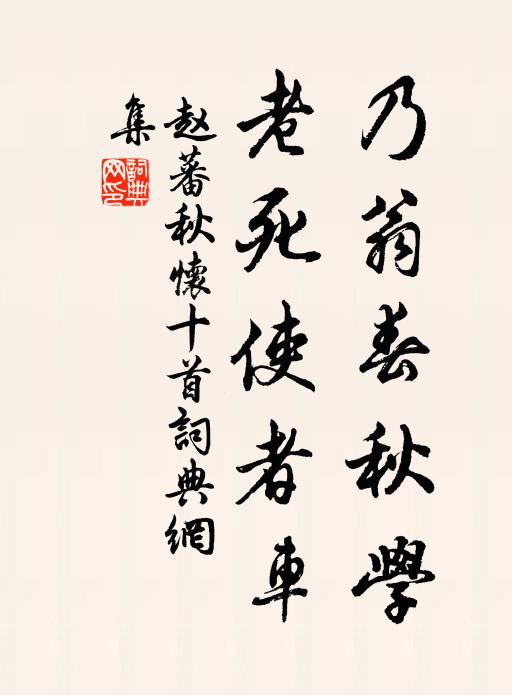 乃翁春秋學
老死使者車
赵蕃秋懷十首詞典網
集
詞典網印